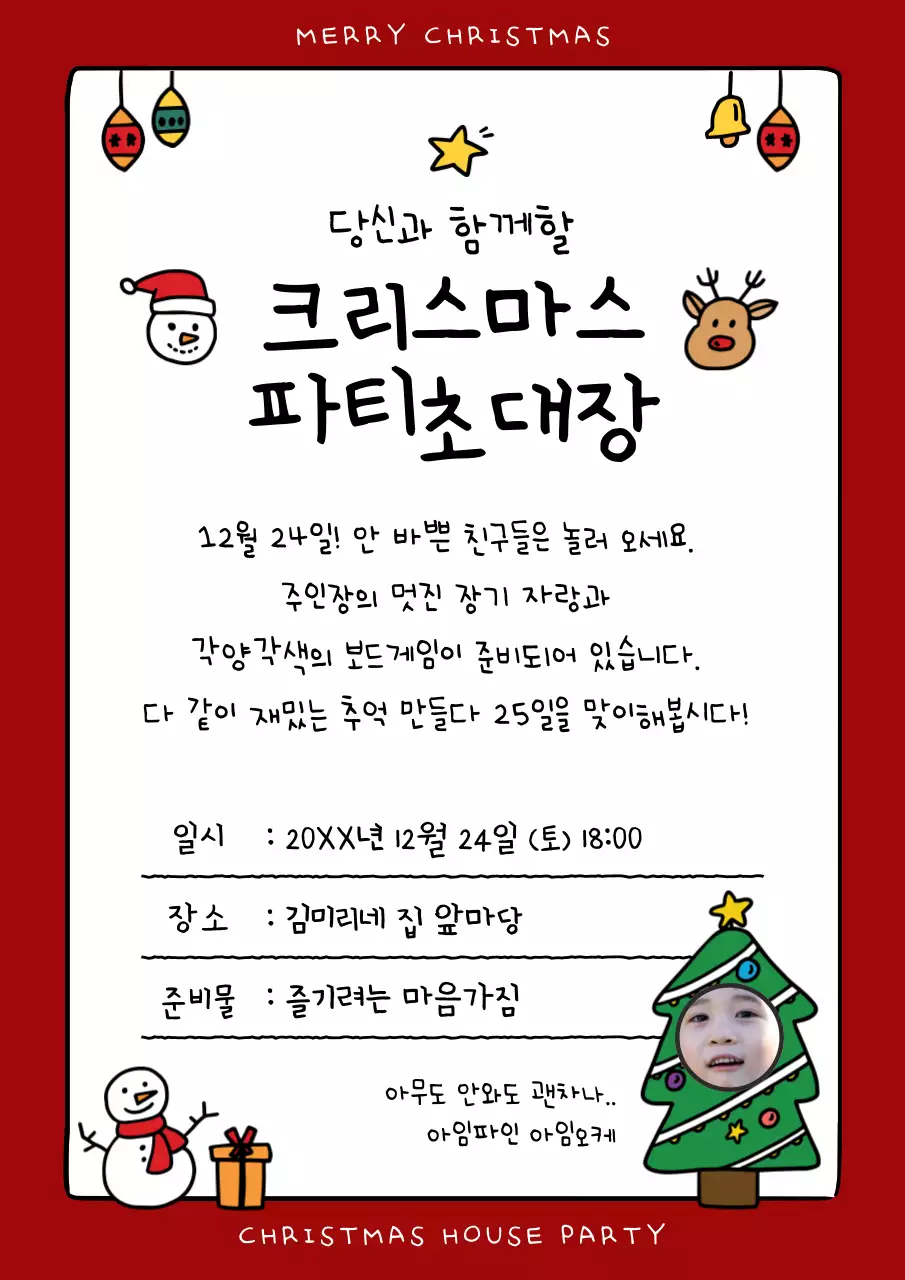 MERRY CHRISTMAS
당신과 함께할
크리스마스
파티초대장
12월 24일! 안 바쁜 친구들은 놀러 오세요.
주인장의 멋진 장기 자랑과
각양각색의 보드게임이 준비되어 있습니다.
다 같이 재밌는 추억 만들다 25일을 맞이해봅시다!
일시 : 20XX년 12월 24일 (토) 18:00
장소 : 김미리네 집 앞마당
준비물 : 즐기려는 마음가짐
아무도 안와도 괜차나..
아임파인 아임오케
CHRISTMAS HOUSE PARTY